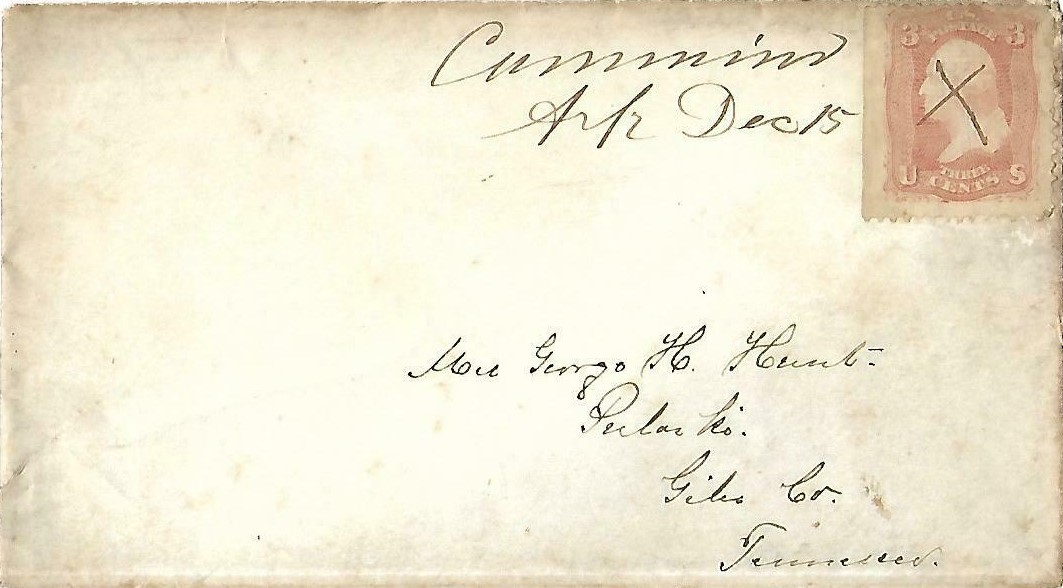 Cummins
Ark Dec 15
3 3
U THREE S
CENTS
Mrs George H. Hunt-
Pulaski.
Giles Co.
Tennessee.